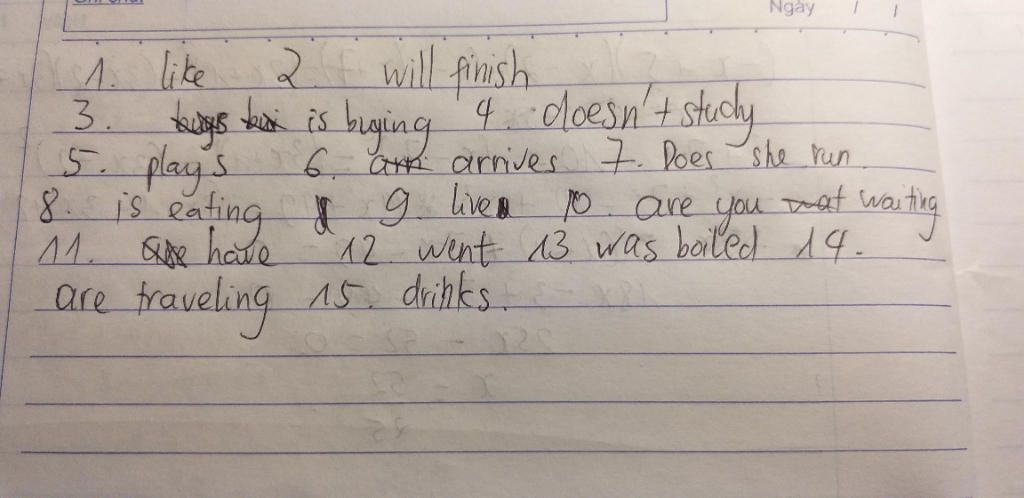 Ngày / /
1. like 2. will finish
3. is buying 4. doesn't study
5. plays 6. arrives 7. Does she run
8. is eating 9. live 10. are you waiting
11. have 12. went 13. was boiled 14.
are traveling 15. drinks.